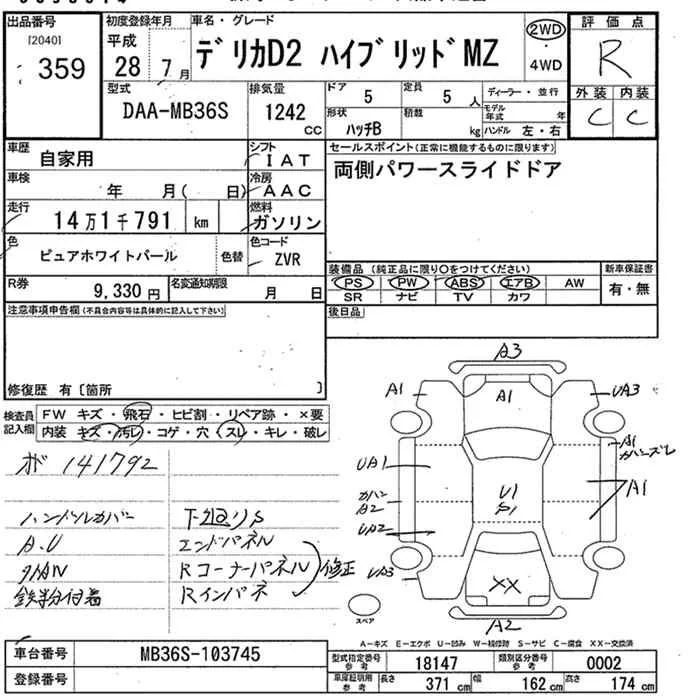 出品番号
[2040]
359
初度登録年月
平成
28 7月
車名・グレード
デリカD2 ハイブリッドMZ
2WD
・
4WD
評価点
R
外装 内装
C C
型式
DAA-MB36S
排気量
1242
cc
ドア
5
定員
5人
形状
ハッチB
積載
kg
ディーラー・並行
モデル年式 年
ハンドル 左・右
車歴
自家用
シフト
IAT
車検
年 月( 日)
冷房
AAC
走行
14万1千791 km
燃料
ガソリン
色
ピュアホワイトパール
色替
色コード
ZVR
R券
9,330円
名変通知期限
月 日
セールスポイント(正常に機能するものに限ります)
両側パワースライドドア
装備品 (純正品に限り○をつけてください)
PS PW ABS エアB AW
SR ナビ TV カワ
新車保証書
有・無
後日品
注意事項申告欄(不具合内容等は具体的に記入して下さい)
修復歴 有〔箇所 〕
検査員記入欄
FW キズ・飛石・ヒビ割・リペア跡・×要
内装 キズ・汚レ・コゲ・穴・スレ・キレ・破レ
141792
ハンドルカバー
下廻りS
A.U
エンドパネル
Rコーナーパネル
修正
鉄粉付着
Rインパネ
A3
A1
A1
UA3
UA1
A1
カバーズレ
カバー
A2
U1
S1
A1
UA2
UA3
XX
A2
スペア
A-キズ E-エクボ U-凹み W-補修跡 S-サビ C-腐食 XX-交換済
車台番号
MB36S-103745
登録番号
型式指定番号
参考
18147
類別区分番号
参考
0002
車庫証明用
参考
長さ 371 cm
幅 162 cm
高さ 174 cm